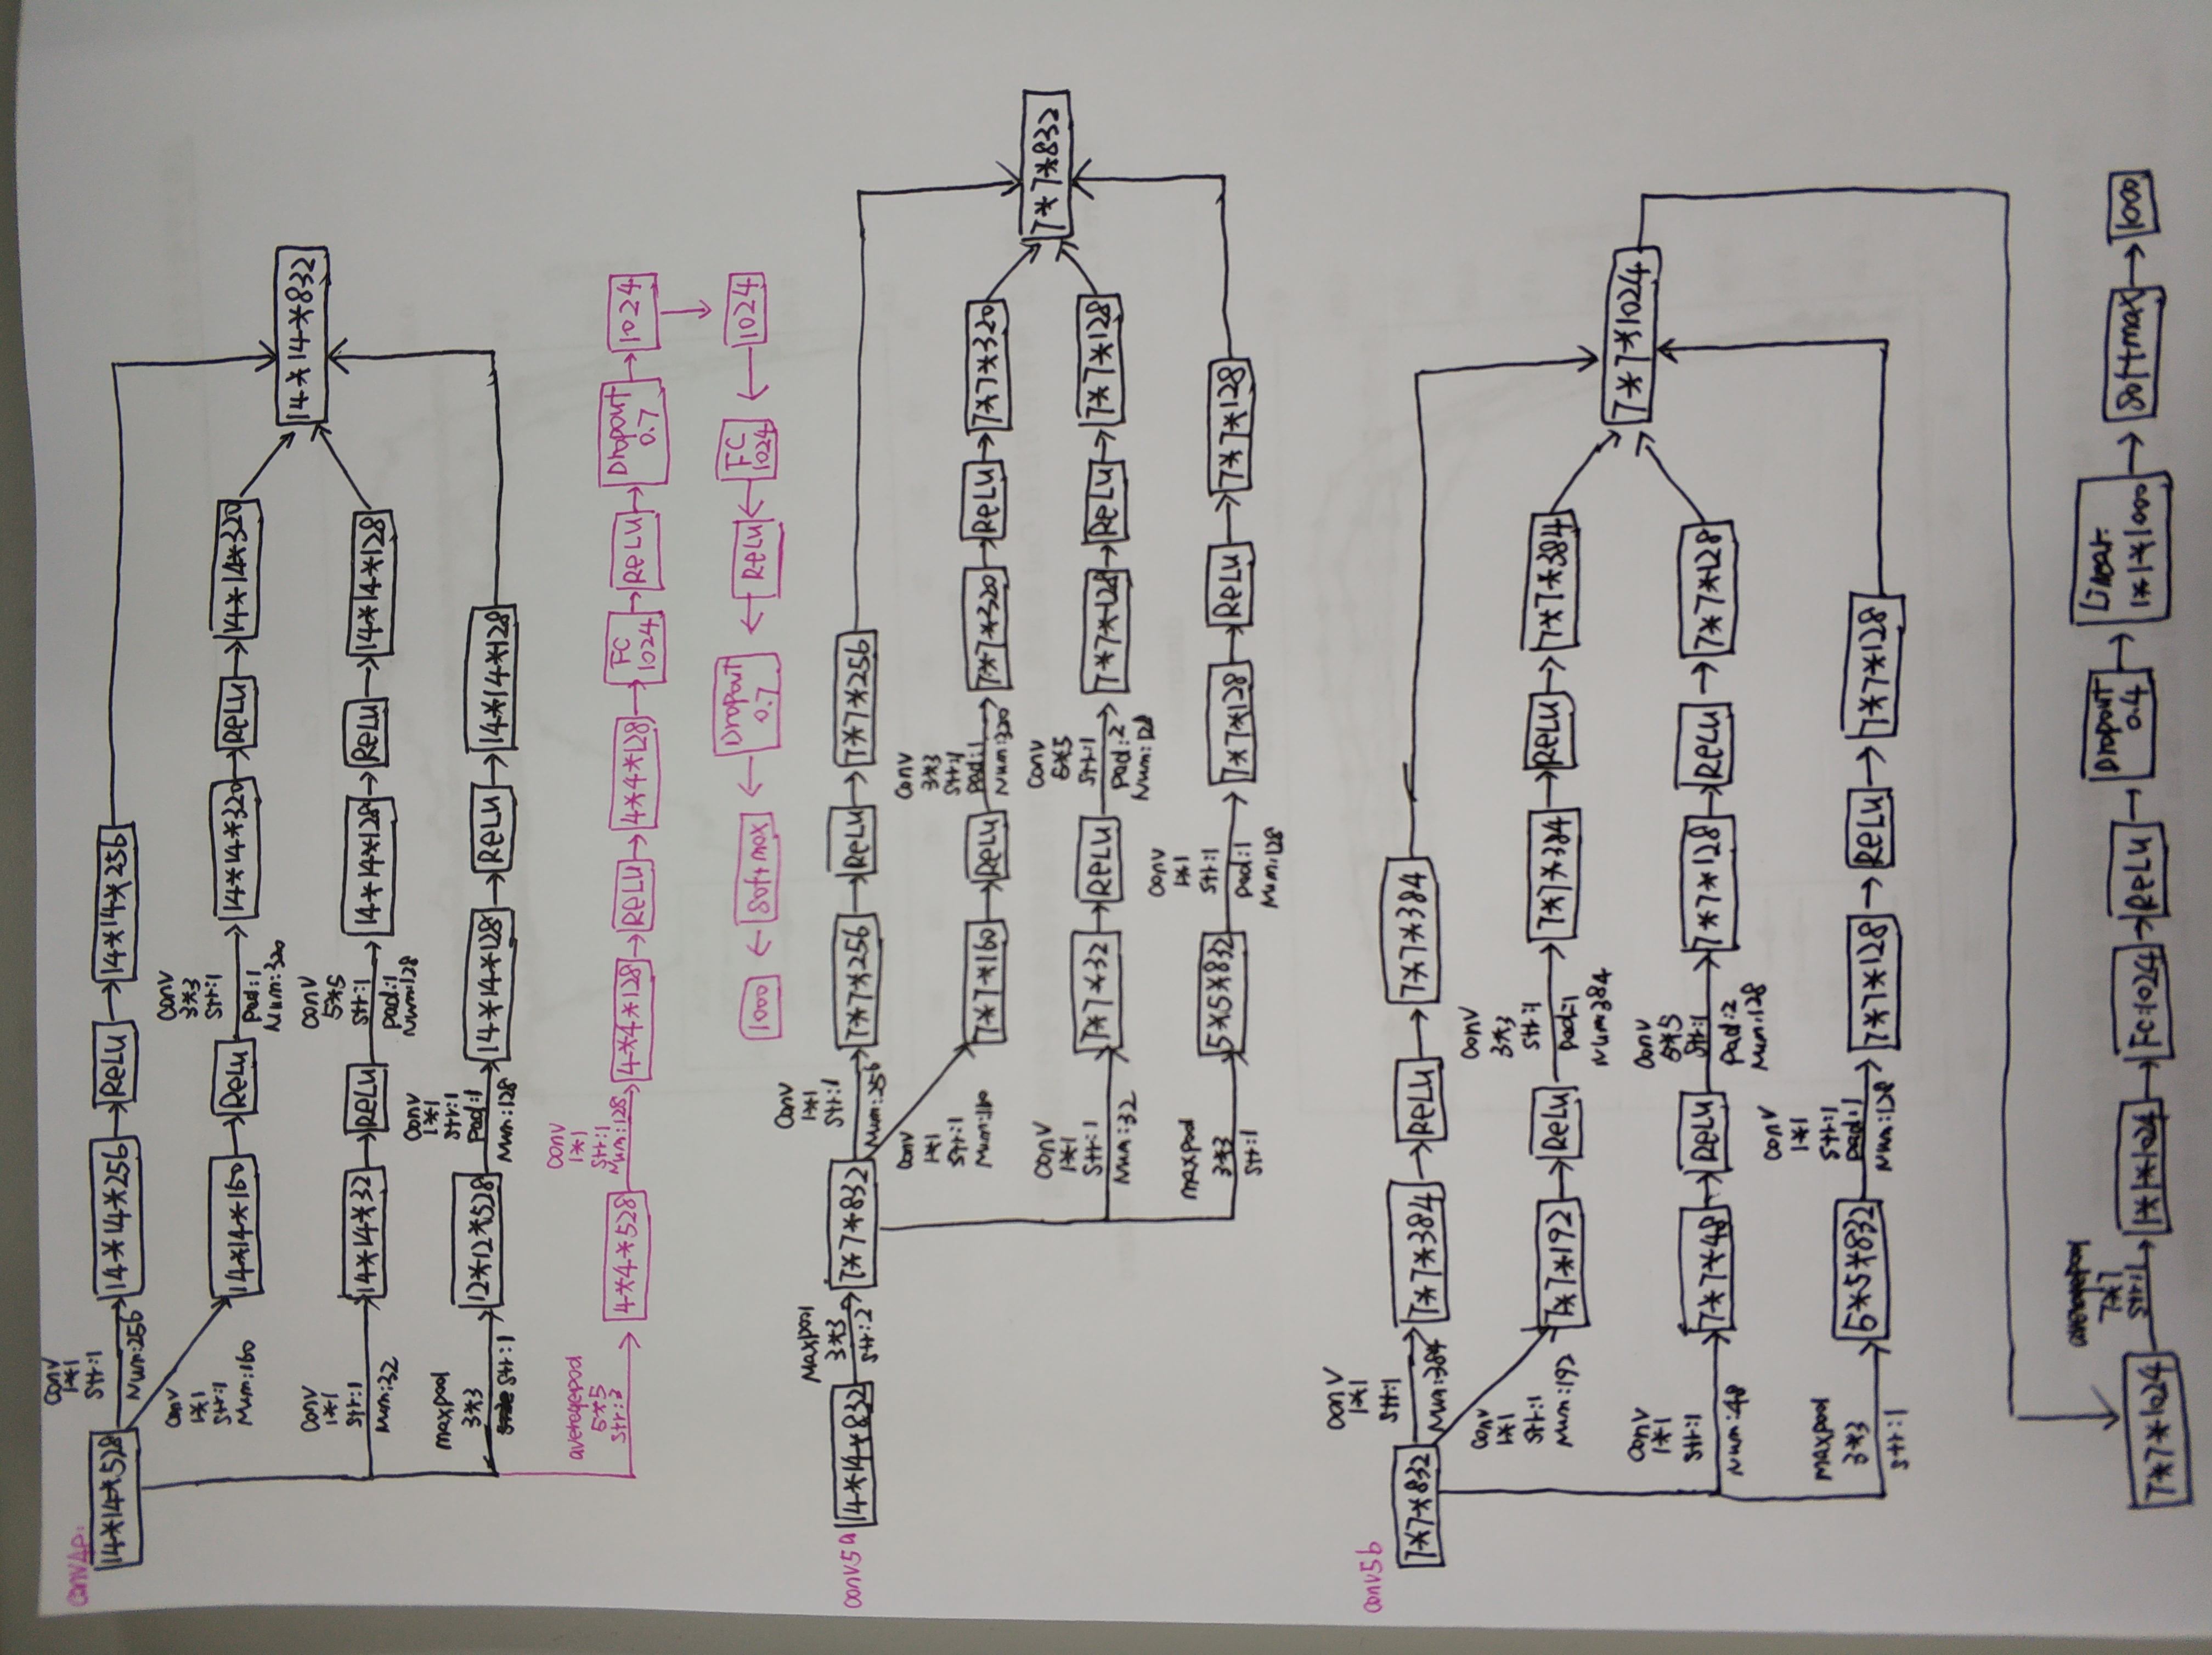 conv4e:
14*14*528
conv
1*1
str:1
Num:256
14*14*256
ReLU
14*14*256
conv
1*1
str:1
Num:160
14*14*160
ReLU
conv
3*3
str:1
pad:1
Num:320
14*14*320
ReLU
14*14*320
conv
1*1
str:1
Num:32
14*14*32
ReLU
conv
5*5
str:1
pad:1
Num:128
14*14*128
ReLU
14*14*128
maxpool
3*3
str:1
12*12*528
conv
1*1
str:1
pad:1
Num:128
14*14*128
ReLU
14*14*128
14*14*832
averagepool
5*5
str:3
4*4*528
conv
1*1
str:1
Num:128
4*4*128
ReLU
4*4*128
FC
1024
ReLU
Dropout
0.7
1024
1024
FC
1024
ReLU
Dropout
0.7
softmax
1000
conv5a
14*14*832
Maxpool
3*3
str:2
7*7*832
conv
1*1
str:1
Num:256
7*7*256
ReLU
7*7*256
conv
1*1
str:1
Num:160
7*7*160
ReLU
conv
3*3
str:1
pad:1
Num:320
7*7*320
ReLU
7*7*320
conv
1*1
str:1
Num:32
7*7*32
ReLU
conv
5*5
str:1
pad:2
Num:128
7*7*128
ReLU
7*7*128
maxpool
3*3
str:1
5*5*832
conv
1*1
str:1
pad:1
Num:128
7*7*128
ReLU
7*7*128
7*7*832
conv5b
7*7*832
conv
1*1
str:1
Num:384
7*7*384
ReLU
7*7*384
conv
1*1
str:1
Num:192
7*7*192
ReLU
conv
3*3
str:1
pad:1
Num:384
7*7*384
ReLU
7*7*384
conv
1*1
str:1
Num:48
7*7*48
ReLU
conv
5*5
str:1
pad:2
Num:128
7*7*128
ReLU
7*7*128
maxpool
3*3
str:1
5*5*832
conv
1*1
str:1
pad:1
Num:128
7*7*128
ReLU
7*7*128
7*7*1024
7*7*1024
averagepool
7*7
str:1
1*1*1024
FC:1024
ReLU
Dropout
0.4
Linear:
1*1*1000
softmax
1000